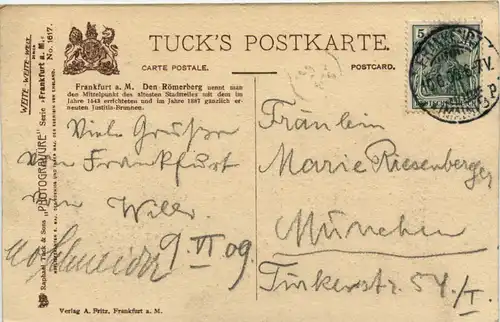 TUCK'S POSTKARTE.
CARTE POSTALE.
POSTCARD.
WEITE WEITE WELT
"PHOTOGRAVURE" Serie „Frankfurt a. M." No. 1617.
Raphael Tuck & Sons
Frankfurt a. M. Den Römerberg nennt man
den Mittelpunkt des ältesten Stadtteiles mit dem im
Jahre 1443 errichteten und im Jahre 1887 gänzlich er-
neuten Justitia-Brunnen.
Viele Grüße
von Frankfurt
von Willi
Schneider 9. VI 09.
Verlag A. Fritz, Frankfurt a. M.
5
FRANKFURT
Fräulein
Marie Riesenberger
München
Türkenstr. 54/I.